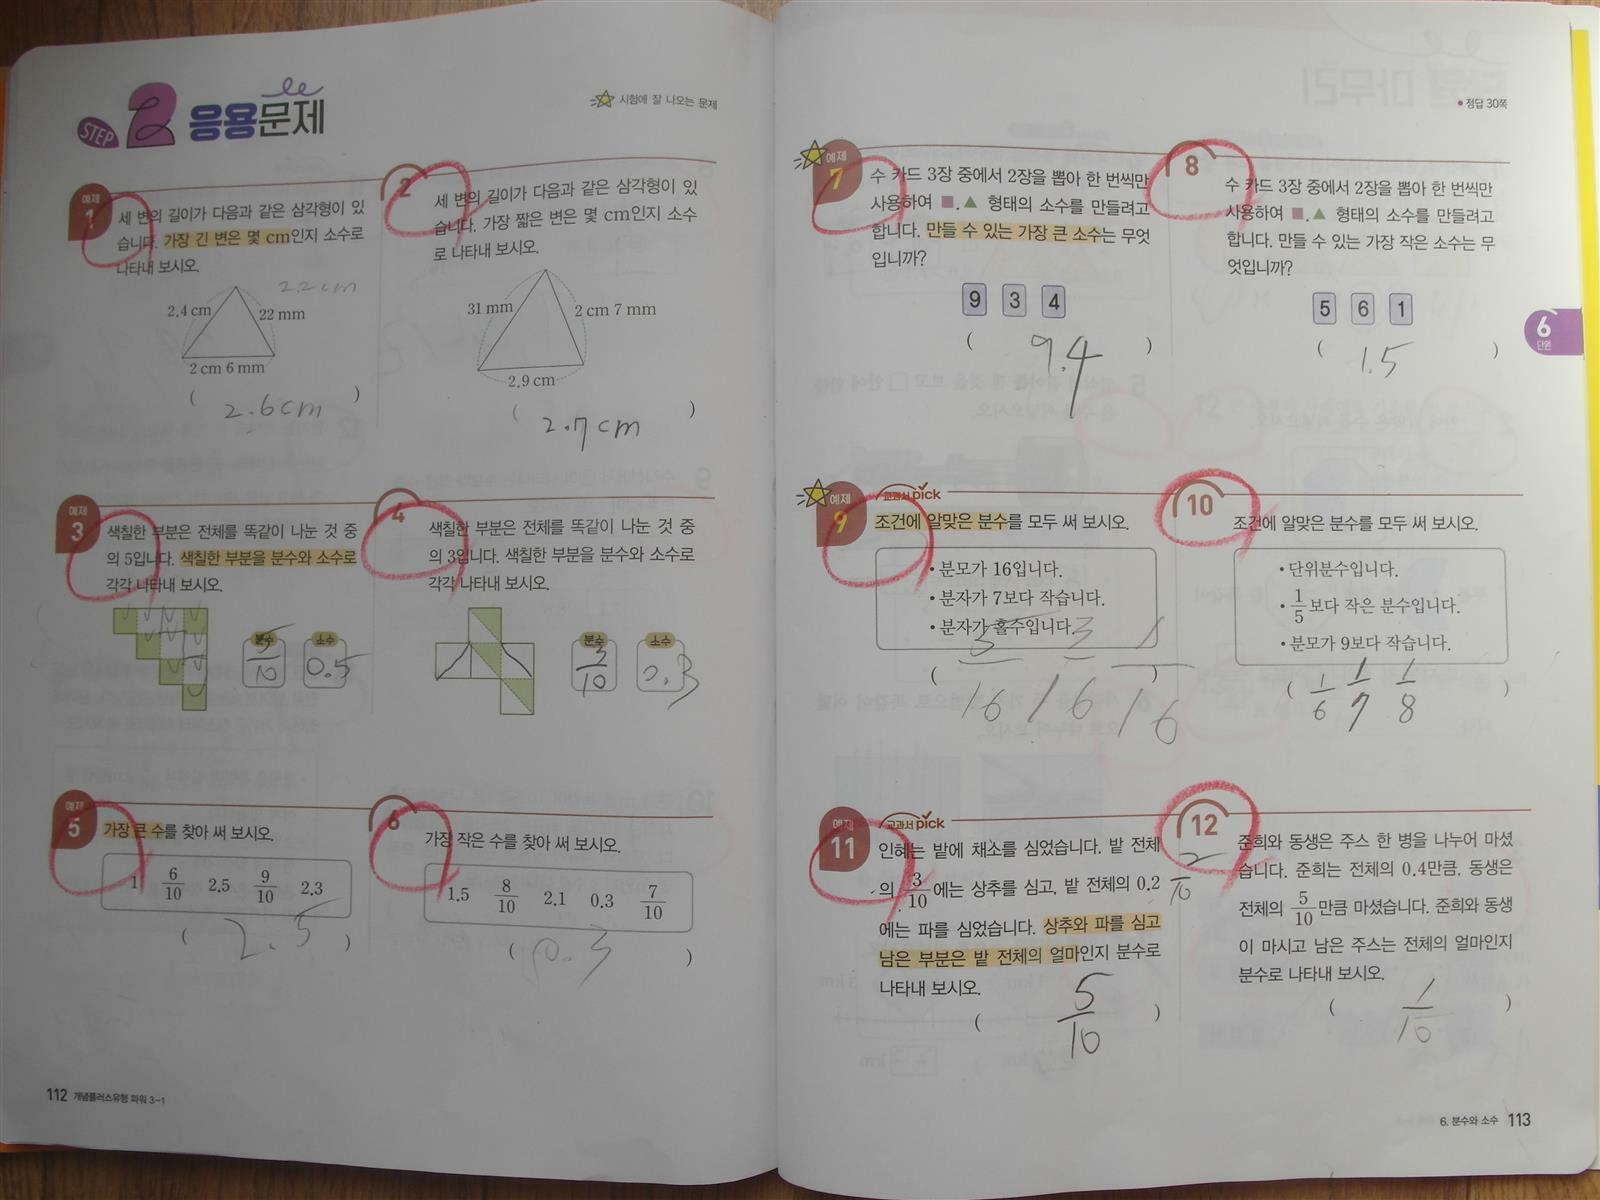 STEP 2 응용문제
시험에 잘 나오는 문제
예제 1
세 변의 길이가 다음과 같은 삼각형이 있
습니다. 가장 긴 변은 몇 cm인지 소수로
나타내 보시오.
2.2cm
2.4 cm
22 mm
2 cm 6 mm
( 2.6cm )
2
세 변의 길이가 다음과 같은 삼각형이 있
습니다. 가장 짧은 변은 몇 cm인지 소수
로 나타내 보시오.
31 mm
2 cm 7 mm
2.9 cm
( 2.7cm )
예제 3
색칠한 부분은 전체를 똑같이 나눈 것 중
의 5입니다. 색칠한 부분을 분수와 소수로
각각 나타내 보시오.
분수 소수
5/10 0.5
4
색칠한 부분은 전체를 똑같이 나눈 것 중
의 3입니다. 색칠한 부분을 분수와 소수로
각각 나타내 보시오.
분수 소수
3/10 0.3
예제 5
가장 큰 수를 찾아 써 보시오.
1 6/10 2.5 9/10 2.3
( 2.5 )
6
가장 작은 수를 찾아 써 보시오.
1.5 8/10 2.1 0.3 7/10
( 0.3 )
112 개념플러스유형 파워 3-1
정답 30쪽
예제 7
수 카드 3장 중에서 2장을 뽑아 한 번씩만
사용하여 ■.▲ 형태의 소수를 만들려고
합니다. 만들 수 있는 가장 큰 소수는 무엇
입니까?
9 3 4
( 9.4 )
8
수 카드 3장 중에서 2장을 뽑아 한 번씩만
사용하여 ■.▲ 형태의 소수를 만들려고
합니다. 만들 수 있는 가장 작은 소수는 무
엇입니까?
5 6 1
( 1.5 )
6
단원
예제 9
교과서 pick
조건에 알맞은 분수를 모두 써 보시오.
• 분모가 16입니다.
• 분자가 7보다 작습니다.
• 분자가 홀수입니다.
( 5/16 3/16 1/16
10
조건에 알맞은 분수를 모두 써 보시오.
• 단위분수입니다.
• 1/5보다 작은 분수입니다.
• 분모가 9보다 작습니다.
( 1/6 1/7 1/8 )
예제 11
교과서 pick
인혜는 밭에 채소를 심었습니다. 밭 전체
의 3/10에는 상추를 심고, 밭 전체의 0.2
2/10
에는 파를 심었습니다. 상추와 파를 심고
남은 부분은 밭 전체의 얼마인지 분수로
나타내 보시오.
( 5/10 )
12
준희와 동생은 주스 한 병을 나누어 마셨
습니다. 준희는 전체의 0.4만큼, 동생은
전체의 5/10만큼 마셨습니다. 준희와 동생
이 마시고 남은 주스는 전체의 얼마인지
분수로 나타내 보시오.
( 1/10 )
6. 분수와 소수 113